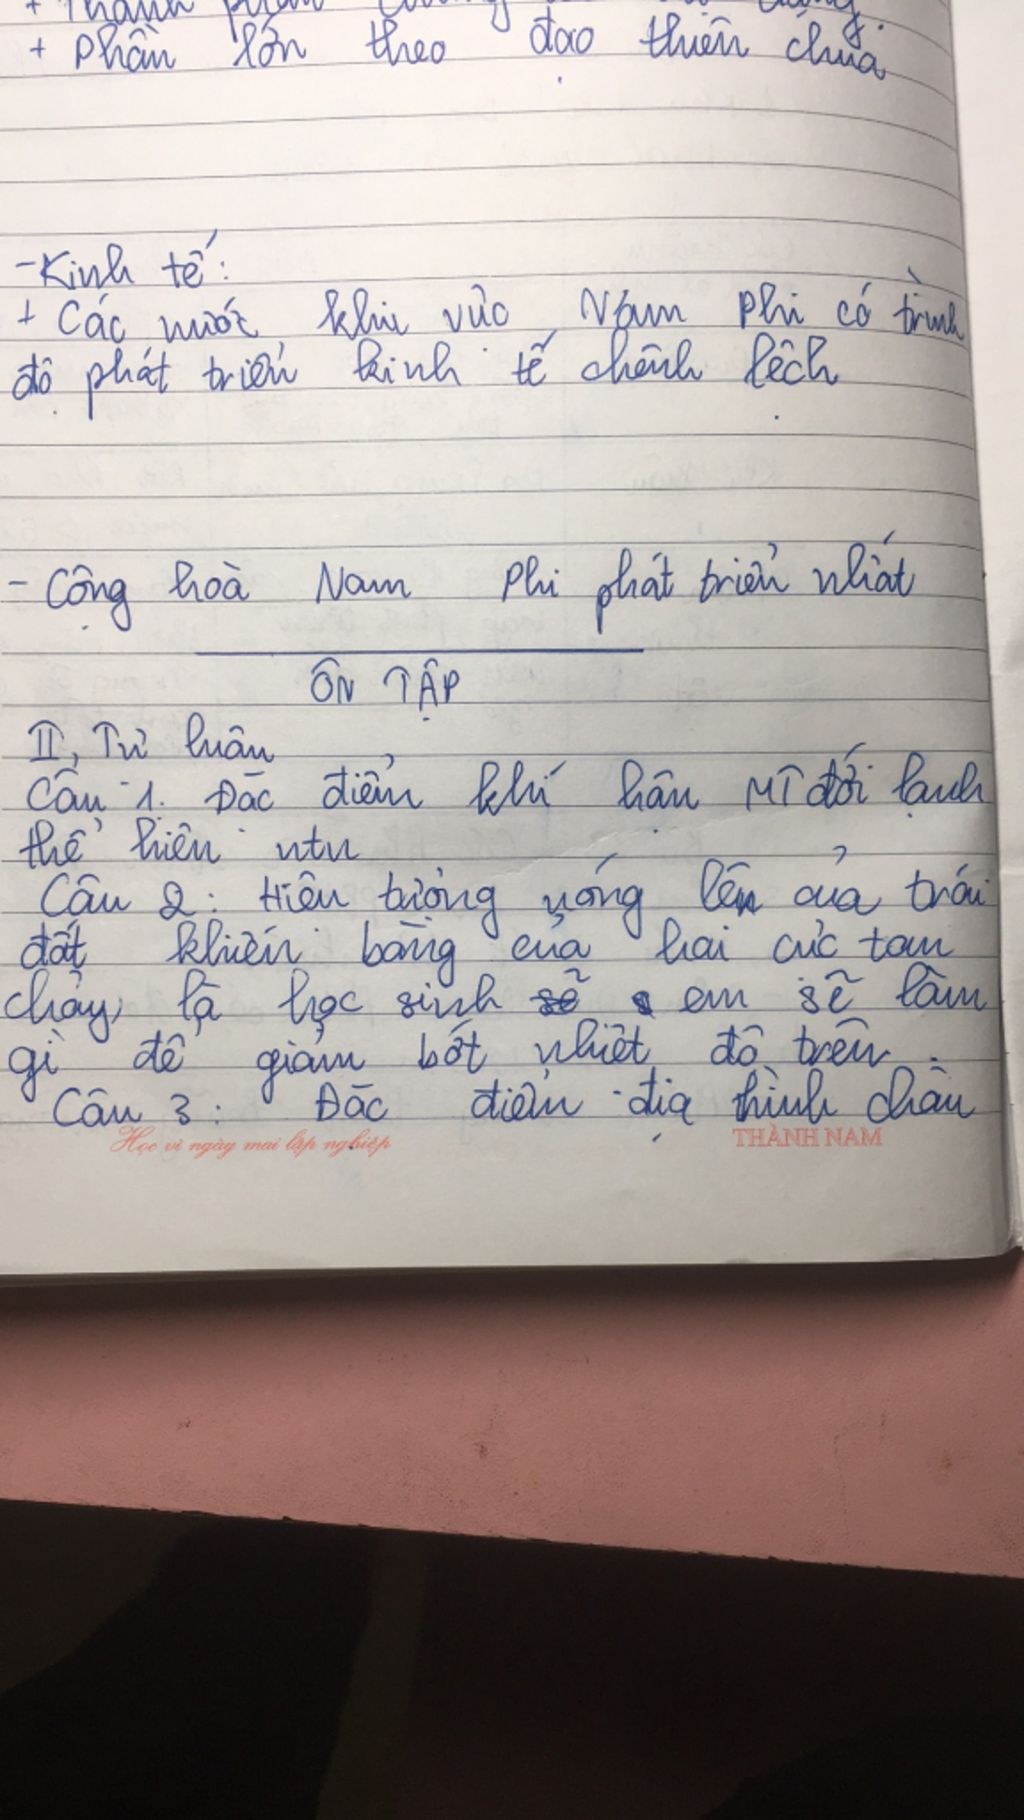 + Thành phần
+ Phần lớn theo đạo thiên chúa
- Kinh tế:
+ Các nước khu vực Nam Phi có trình
độ phát triển kinh tế chênh lệch
- Cộng hoà Nam Phi phát triển nhất
ÔN TẬP
II, Tự luận
Câu 1. Đặc điểm khí hậu MT đới lạnh
thể hiện ntn
Câu 2: Hiện tượng nóng lên của trái
đất khiến băng của hai cực tan
chảy, là học sinh sẽ em sẽ làm
gì để giảm bớt nhiệt độ trên.
Câu 3: Đặc điểm địa hình châu
Học vì ngày mai lập nghiệp THÀNH NAM